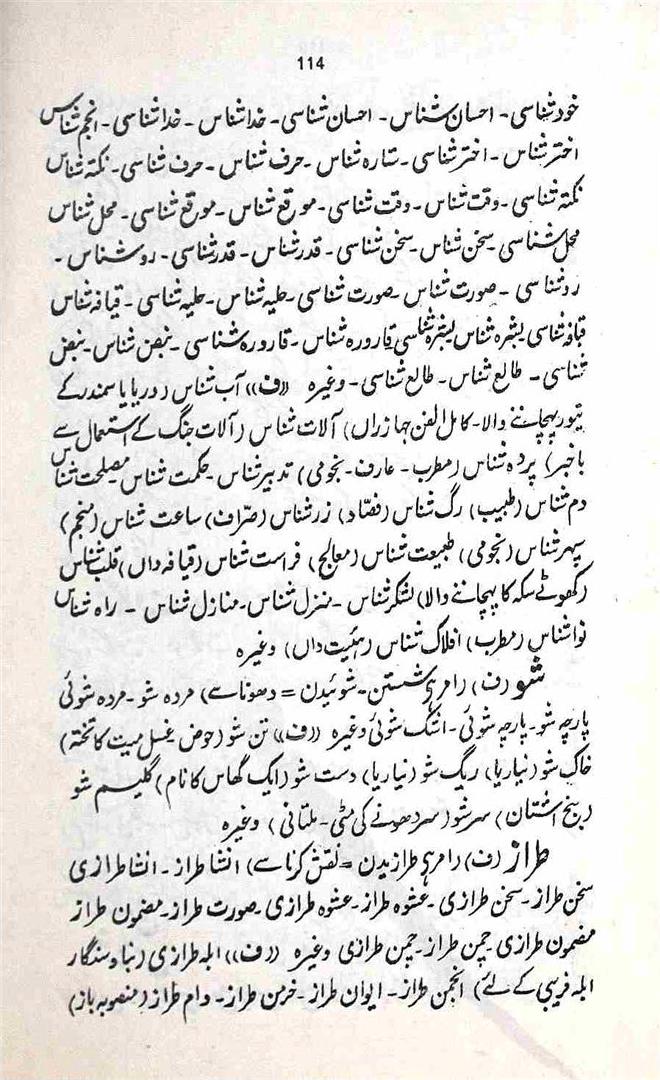 114
خود شناسی - احسان شناس - احسان شناسی - خدا شناس - خدا شناسی - انجم شناس
اختر شناس - اختر شناسی - ستاره شناس - حرف شناس - حرف شناسی - نکتہ شناس
نکتہ شناسی - وقت شناس - وقت شناسی - موقع شناس - موقع شناسی - محل شناس
محل شناسی - سخن شناس - سخن شناسی - قدر شناس - قدر شناسی - رو شناس -
رو شناسی - صورت شناس - صورت شناسی - حلیہ شناس - حلیہ شناسی - قیافہ شناس
قیافہ شناسی بشرہ شناس بشرہ شناسی قارورہ شناس - قارورہ شناسی - نبض شناس - نبض
شناسی - طالع شناس - طالع شناسی - وغیرہ ((ف)) آب شناس (دریا یا سمندر کے
تیور پہچاننے والا - کامل الفن جہاز راں) آلات شناس (آلات جنگ کے استعمال سے
باخبر) پردہ شناس (مطرب - عارف - نجومی) تدبیر شناس - حکمت شناس مصلحت شناس
دم شناس (طبیب) رگ شناس (فصّاد) زر شناس (صرّاف) ساعت شناس (منجم)
سپہر شناس (نجومی) طبیعت شناس (معالج) فراست شناس (قیافہ داں) قلب شناس
(کھوٹے سکہ کا پہچاننے والا) لشکر شناس - منزل شناس - منازل شناس - راہ شناس
نوا شناس (مطرب) افلاک شناس (ہئیت داں) وغیرہ
شو (ف) (امر ہی شستن - شوئیدن = دھونا سے) مردہ شو - مردہ شوئی
پارچہ شو - پارچہ شوئی - اشک شوئی وغیرہ ((ف)) تن شو (حوض، غسل میت کا تختہ)
خاک شو (نیاریا) ریگ شو (نیاریا) دست شو (ایک گھاس کا نام) گلیم شو
(بیخ اشنان) سر شو (سر دھونے کی مٹی - ملتانی) وغیرہ
طراز (ف) (امر ہی طرازیدن = نقش کرنا سے) انشا طراز - انشا طرازی
سخن طراز - سخن طرازی - عشوہ طراز - عشوہ طرازی - صورت طراز - مضمون طراز
مضمون طرازی - چمن طراز - چمن طرازی وغیرہ ((ف)) ابلہ طرازی (بناو سنگار
ابلہ فریبی کے لئے) انجمن طراز - ایوان طراز - خرمن طراز - دام طراز (منصوبہ باز)